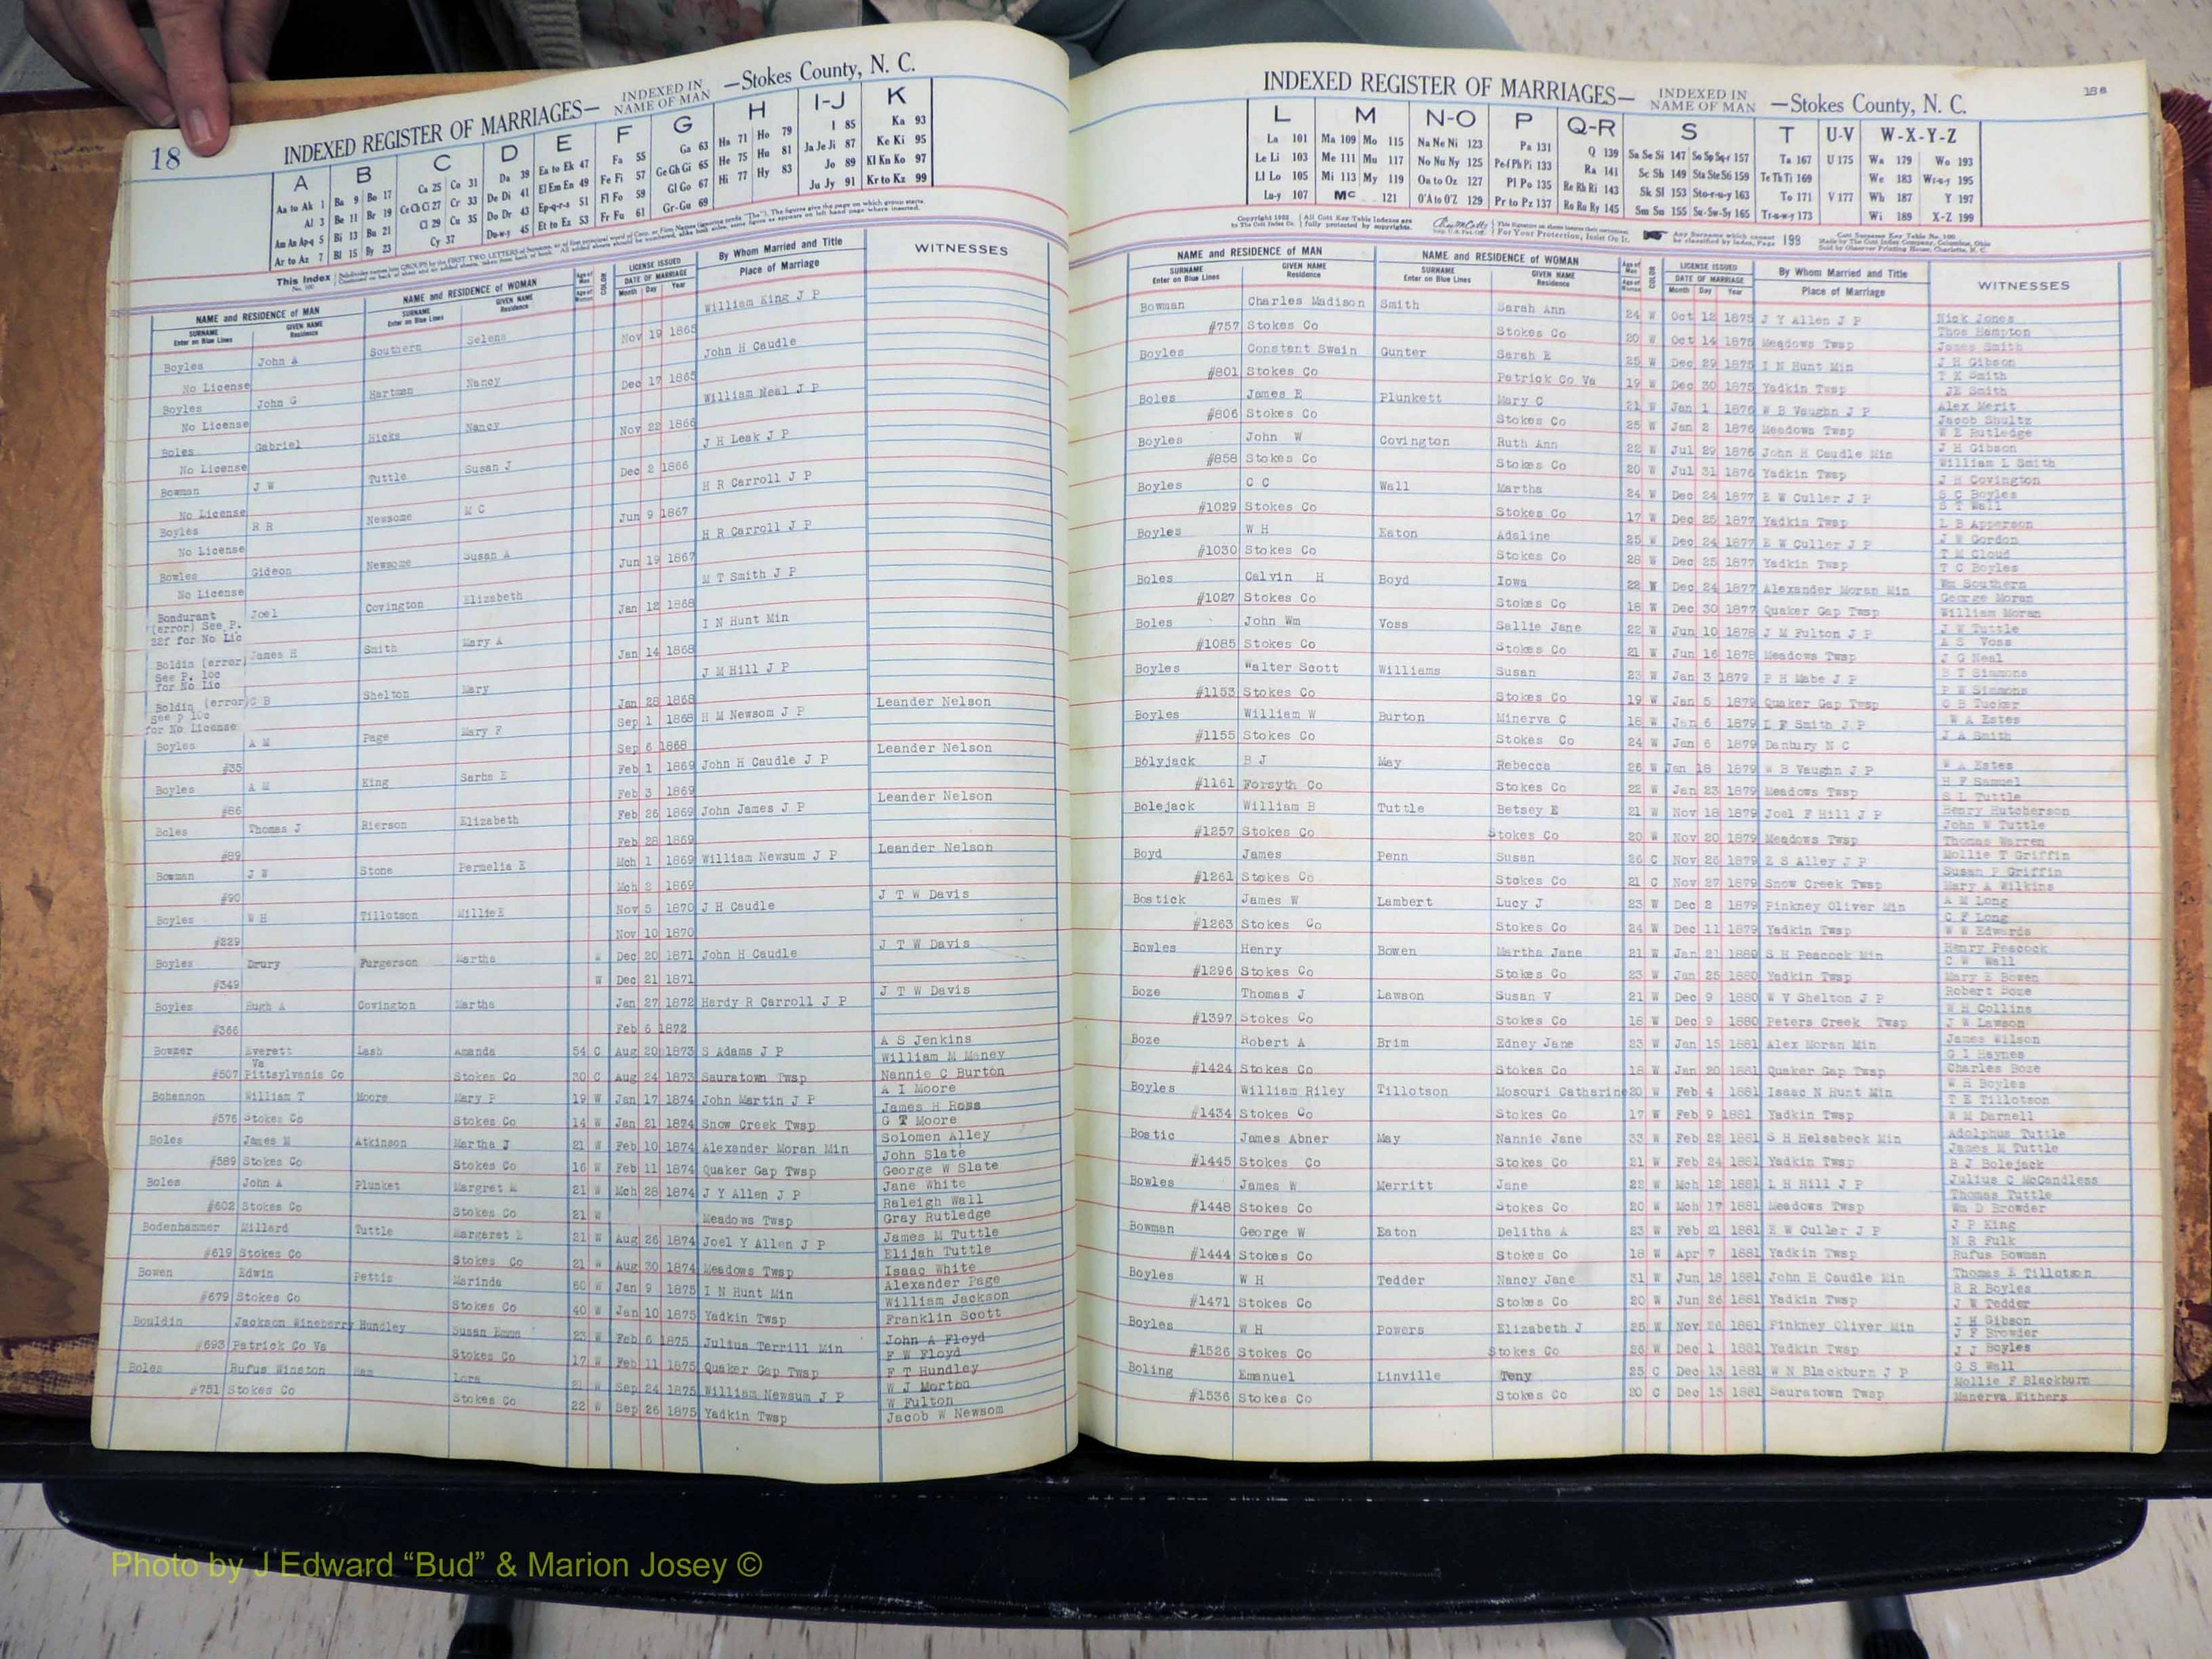 18
INDEXED REGISTER OF MARRIAGES— INDEXED IN NAME OF MAN —Stokes County, N. C.
A B C D E F G H I-J K
Aa to Ak 1 Ba 9 Bo 17 Ca 25 Co 31 Da 39 Ea to Ek 47 Fa 55 Ga 63 Ha 71 Ho 79 I 85 Ka 93
Al 3 Be 11 Br 19 Ce Ch Ci 27 Cr 33 De Di 41 El Em En 49 Fe Fi 57 Ge Gh Gi 65 He 75 Hu 81 Ja Je Ji 87 Ke Ki 95
Am An Ap-q 5 Bi 13 Bu 21 Cl 29 Cu 35 Do Dr 43 Ep-q-r-s 51 Fl Fo 59 Gl Go 67 Hi 77 Hy 83 Jo 89 Kl Kn Ko 97
Ar to Az 7 Bl 15 By 23 Cy 37 Du-w-y 45 Et to Ez 53 Fr Fu 61 Gr-Gu 69 Ju Jy 91 Kr to Kz 99
This Index
NAME and RESIDENCE OF MAN NAME and RESIDENCE OF WOMAN COLOR LICENSE ISSUED By Whom Married and Title WITNESSES
SURNAME Enter on Blue Lines GIVEN NAME Residence SURNAME Enter on Blue Lines GIVEN NAME Residence DATE OF MARRIAGE Month Day Year Place of Marriage
Boyles John A Southern Selena William King J P
No License Nov 19 1865
Boyles John G Hartman Nancy John H Caudle
No License Dec 17 1865
Boles Gabriel Hicks Nancy William Neal J P
No License Nov 22 1866
Bowman J W Tuttle Susan J J H Leak J P
No License Dec 2 1866
Boyles R R Newsome M C H R Carroll J P
No License Jun 9 1867
Bowles Gideon Newsome Susan A H R Carroll J P
No License Jun 19 1867
Bondurant Joel Covington Elizabeth M T Smith J P
(error) See P. Jan 12 1868
22f for No Lic
Boldin (error) James H Smith Mary A I N Hunt Min
See P. 10c Jan 14 1868
for No Lic
Boldin (error) C B Shelton Mary J M Hill J P
See p 10c Jan 28 1868
for No License
Boyles A M Page Mary F Sep 1 1868 H M Newsom J P Leander Nelson
#35 Sep 6 1868
Boyles A M King Sarha E Feb 1 1869 John H Caudle J P Leander Nelson
#86 Feb 3 1869
Boles Thomas J Rierson Elizabeth Feb 26 1869 John James J P Leander Nelson
#89 Feb 28 1869
Bowman J W Stone Permelia E Mch 1 1869 William Newsum J P Leander Nelson
#90 Mch 2 1869
Boyles W H Tillotson Millie E Nov 5 1870 J H Caudle J T W Davis
#229 Nov 10 1870
Boyles Drury Furgerson Martha W Dec 20 1871 John H Caudle J T W Davis
#349 W Dec 21 1871
Boyles Hugh A Covington Martha Jan 27 1872 Hardy R Carroll J P J T W Davis
#366 Feb 6 1872
Bowzer Everett Lash Amanda 54 C Aug 20 1873 S Adams J P A S Jenkins
Va William M Maney
#507 Pittsylvania Co Stokes Co 30 C Aug 24 1873 Sauratown Twsp Nannie C Burton
Bohannon William T Moore Mary P 19 W Jan 17 1874 John Martin J P A I Moore
James H Ross
#576 Stokes Co Stokes Co 14 W Jan 21 1874 Snow Creek Twsp G T Moore
Boles James M Atkinson Martha J 21 W Feb 10 1874 Alexander Moran Min Solomen Alley
John Slate
#589 Stokes Co Stokes Co 16 W Feb 11 1874 Quaker Gap Twsp George W Slate
Boles John A Plunket Margret M 21 W Mch 28 1874 J Y Allen J P Jane White
Raleigh Wall
#602 Stokes Co Stokes Co 21 W Meadows Twsp Gray Rutledge
Bodenhammer Millard Tuttle Margaret E 21 W Aug 26 1874 Joel Y Allen J P James M Tuttle
Elijah Tuttle
#619 Stokes Co Stokes Co 21 W Aug 30 1874 Meadows Twsp Isaac White
Bowen Edwin Pettis Marinda 60 W Jan 9 1875 I N Hunt Min Alexander Page
William Jackson
#679 Stokes Co Stokes Co 40 W Jan 10 1875 Yadkin Twsp Franklin Scott
Bouldin Jackson Wineberry Hundley Susan Emma 23 W Feb 6 1875 Julius Terrill Min John A Floyd
F W Floyd
#693 Patrick Co Va Stokes Co 17 W Feb 11 1875 Quaker Gap Twsp F T Hundley
Boles Rufus Winston Ham Lora 21 W Sep 24 1875 William Newsum J P W J Morton
W Fulton
#751 Stokes Co Stokes Co 22 W Sep 26 1875 Yadkin Twsp Jacob W Newsom
18a
INDEXED REGISTER OF MARRIAGES— INDEXED IN NAME OF MAN —Stokes County, N. C.
L M N-O P Q-R S T U-V W-X-Y-Z
La 101 Ma 109 Mo 115 Na Ne Ni 123 Pa 131 Q 139 Sa Se Si 147 So Sp Sq-r 157 Ta 167 U 175 Wa 179 Wo 193
Le Li 103 Me 111 Mu 117 No Nu Ny 125 Pe-f Ph Pi 133 Ra 141 Sc Sh 149 Sta Ste Sti 159 Te Th Ti 169 We 183 Wr-u-y 195
Ll Lo 105 Mi 113 My 119 Oa to Oz 127 Pl Po 135 Re Rh Ri 143 Sk Sl 153 Sto-r-u-y 163 To 171 V 177 Wh 187 Y 197
Lu-y 107 Mc 121 O'A to O'Z 129 Pr to Pz 137 Ro Ru Ry 145 Sm Sn 155 Su-Sw-Sy 165 Tr-u-w-y 173 Wi 189 X-Z 199
NAME and RESIDENCE OF MAN NAME and RESIDENCE OF WOMAN Age of Man Age of Woman COLOR LICENSE ISSUED By Whom Married and Title WITNESSES
SURNAME Enter on Blue Lines GIVEN NAME Residence SURNAME Enter on Blue Lines GIVEN NAME Residence DATE OF MARRIAGE Month Day Year Place of Marriage
Bowman Charles Madison Smith Sarah Ann 24 W Oct 12 1875 J Y Allen J P Nick Jones
Thos Hampton
#757 Stokes Co Stokes Co 20 W Oct 14 1875 Meadows Twsp James Smith
Boyles Constant Swain Gunter Sarah E 25 W Dec 29 1875 I N Hunt Min J H Gibson
T K Smith
#801 Stokes Co Patrick Co Va 19 W Dec 30 1875 Yadkin Twsp JE Smith
Boles James E Plunkett Mary C 21 W Jan 1 1876 W B Vaughn J P Alex Merit
Jacob Shultz
#806 Stokes Co Stokes Co 25 W Jan 2 1876 Meadows Twsp W E Rutledge
Boyles John W Covington Ruth Ann 22 W Jul 29 1876 John H Caudle Min J H Gibson
William L Smith
#858 Stokes Co Stokes Co 20 W Jul 31 1876 Yadkin Twsp J H Covington
Boyles C C Wall Martha 24 W Dec 24 1877 E W Culler J P S C Boyles
S T Wall
#1029 Stokes Co Stokes Co 17 W Dec 25 1877 Yadkin Twsp L B Apperson
Boyles W H Eaton Adaline 25 W Dec 24 1877 E W Culler J P J W Gordon
T M Cloud
#1030 Stokes Co Stokes Co 28 W Dec 25 1877 Yadkin Twsp T C Boyles
Boles Calvin H Boyd Iowa 22 W Dec 24 1877 Alexander Moran Min Wm Southern
George Moran
#1027 Stokes Co Stokes Co 18 W Dec 30 1877 Quaker Gap Twsp William Moran
Boles John Wm Voss Sallie Jane 22 W Jun 10 1878 J M Fulton J P J W Tuttle
A S Voss
#1085 Stokes Co Stokes Co 21 W Jun 16 1878 Meadows Twsp J G Neal
Boyles Walter Scott Williams Susan 23 W Jan 3 1879 P H Mabe J P B T Simmons
P W Simmons
#1153 Stokes Co Stokes Co 19 W Jan 5 1879 Quaker Gap Twsp C B Tucker
Boyles William W Burton Minerva C 18 W Jan 6 1879 L F Smith J P W A Estes
J A Smith
#1155 Stokes Co Stokes Co 24 W Jan 6 1879 Danbury N C
Bolyjack B J May Rebecca 26 W Jan 18 1879 W B Vaughn J P W A Estes
H F Samuel
#1161 Forsyth Co Stokes Co 22 W Jan 23 1879 Meadows Twsp S L Tuttle
Bolejack William B Tuttle Betsey E 21 W Nov 18 1879 Joel F Hill J P Henry Hutcherson
John W Tuttle
#1257 Stokes Co Stokes Co 20 W Nov 20 1879 Meadows Twsp Thomas Warren
Boyd James Penn Susan 26 C Nov 26 1879 Z S Alley J P Mollie T Griffin
Susan P Griffin
#1261 Stokes Co Stokes Co 21 C Nov 27 1879 Snow Creek Twsp Mary A Wilkins
Bostick James W Lambert Lucy J 23 W Dec 2 1879 Pinkney Oliver Min A M Long
C F Long
#1263 Stokes Co Stokes Co 24 W Dec 11 1879 Yadkin Twsp W W Edwards
Bowles Henry Bowen Martha Jane 21 W Jan 21 1880 S H Peacock Min Henry Peacock
C W Wall
#1296 Stokes Co Stokes Co 23 W Jan 25 1880 Yadkin Twsp Mary E Bowen
Boze Thomas J Lawson Susan V 21 W Dec 9 1880 W V Shelton J P Robert Boze
W H Collins
#1397 Stokes Co Stokes Co 18 W Dec 9 1880 Peters Creek Twsp J W Lawson
Boze Robert A Brim Edney Jane 23 W Jan 15 1881 Alex Moran Min James Wilson
G I Haynes
#1424 Stokes Co Stokes Co 18 W Jan 20 1881 Quaker Gap Twsp Charles Boze
Boyles William Riley Tillotson Mosouri Catharine 20 W Feb 4 1881 Isaac N Hunt Min W H Boyles
T E Tillotson
#1434 Stokes Co Stokes Co 17 W Feb 9 1881 Yadkin Twsp W M Darnell
Bostic James Abner May Nannie Jane 33 W Feb 22 1881 S H Helsabeck Min Adolphus Tuttle
James M Tuttle
#1445 Stokes Co Stokes Co 21 W Feb 24 1881 Yadkin Twsp B J Bolejack
Bowles James W Merritt Jane 22 W Mch 12 1881 L H Hill J P Julius C McCandless
Thomas Tuttle
#1448 Stokes Co Stokes Co 20 W Mch 17 1881 Meadows Twsp Wm D Browder
Bowman George W Eaton Delitha A 23 W Feb 21 1881 E W Culler J P J P King
N R Fulk
#1444 Stokes Co Stokes Co 18 W Apr 7 1881 Yadkin Twsp Rufus Bowman
Boyles W H Tedder Nancy Jane 31 W Jun 18 1881 John H Caudle Min Thomas E Tillotson
R R Boyles
#1471 Stokes Co Stokes Co 20 W Jun 26 1881 Yadkin Twsp J W Tedder
Boyles W H Powers Elizabeth J 25 W Nov 26 1881 Pinkney Oliver Min J H Gibson
J F Browder
#1526 Stokes Co Stokes Co 26 W Dec 1 1881 Yadkin Twsp J J Boyles
Boling Emanuel Linville Teny 25 C Dec 13 1881 W N Blackburn J P G S Wall
Mollie F Blackburn
#1536 Stokes Co Stokes Co 20 C Dec 15 1881 Sauratown Twsp Manerva Withers
Photo by J Edward “Bud” & Marion Josey ©